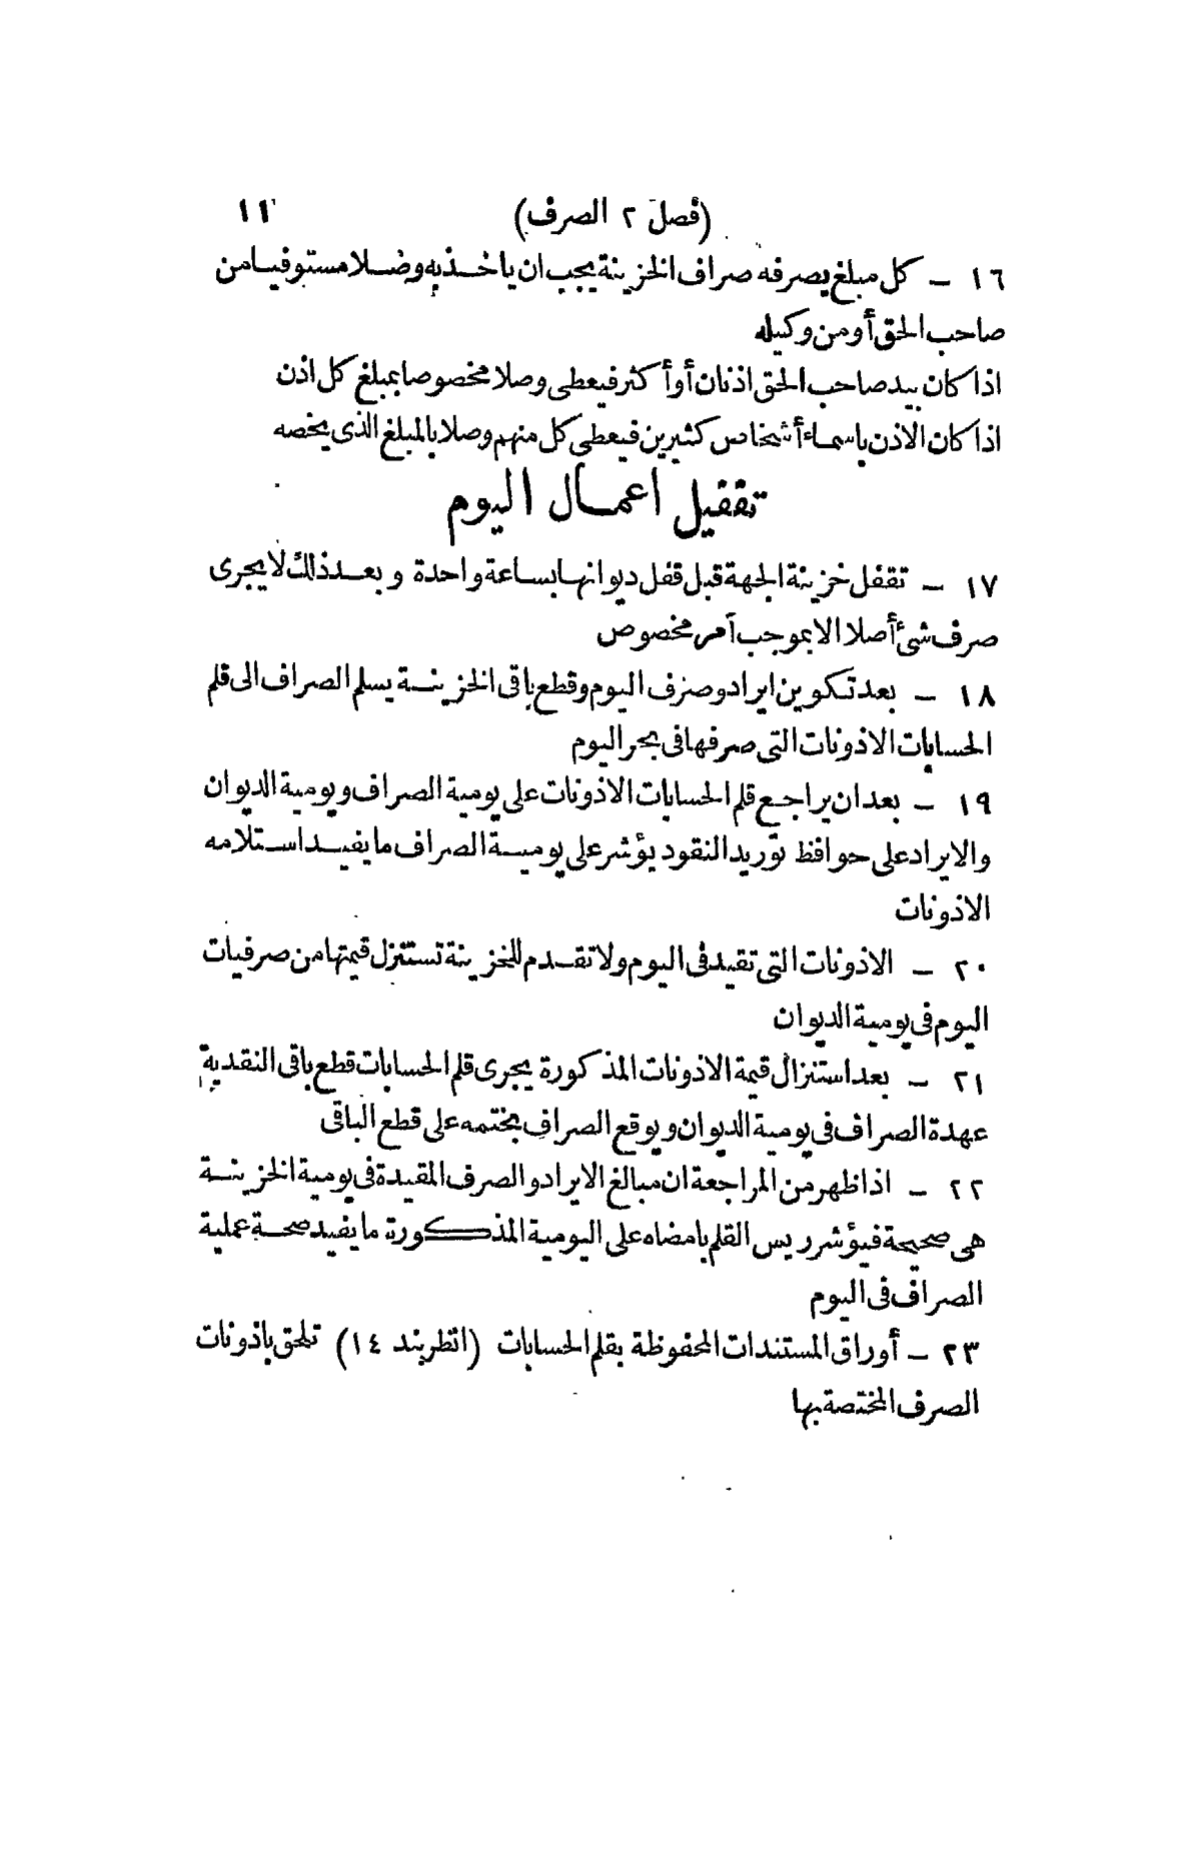 (فصل ٢ الصرف) ١١
١٦ – كل مبلغ يصرفه صراف الخزينة يجب ان ياخذ به وصلا مستوفيا من
صاحب الحق أو من وكيله
اذا كان بيد صاحب الحق اذنان أو أكثر فيعطى وصلا مخصوصا بمبلغ كل اذن
اذا كان الاذن باسماء أشخاص كثيرين فيعطى كل منهم وصلا بالمبلغ الذى يخصه
تقفيل اعمال اليوم
١٧ – تقفل خزينة الجهة قبل قفل ديوانها بساعة واحدة وبعد ذلك لا يجرى
صرف شئ أصلا الا بموجب أمر مخصوص
١٨ – بعد تكوين ايراد وصرف اليوم وقطع باقى الخزينة يسلم الصراف الى قلم
الحسابات الاذونات التى صرفها فى بحر اليوم
١٩ – بعد ان يراجع قلم الحسابات الاذونات على يومية الصراف ويومية الديوان
والايراد على حوافظ توريد النقود يؤشر على يومية الصراف ما يفيد استلامه
الاذونات
٢٠ – الاذونات التى تقيد فى اليوم ولا تقدم للخزينة تستنزل قيمتها من صرفيات
اليوم فى يومية الديوان
٢١ – بعد استنزال قيمة الاذونات المذكورة يجرى قلم الحسابات قطع باقى النقدية
عهدة الصراف فى يومية الديوان ويوقع الصراف بختمه على قطع الباقى
٢٢ – اذا ظهر من المراجعة ان مبالغ الايراد والصرف المقيدة فى يومية الخزينة
هى صحيحة فيؤشر ريس القلم بامضاه على اليومية المذكورة ما يفيد صحة عملية
الصراف فى اليوم
٢٣ – أوراق المستندات المحفوظة بقلم الحسابات (انظر بند ١٤) تلحق باذونات
الصرف المختصة بها